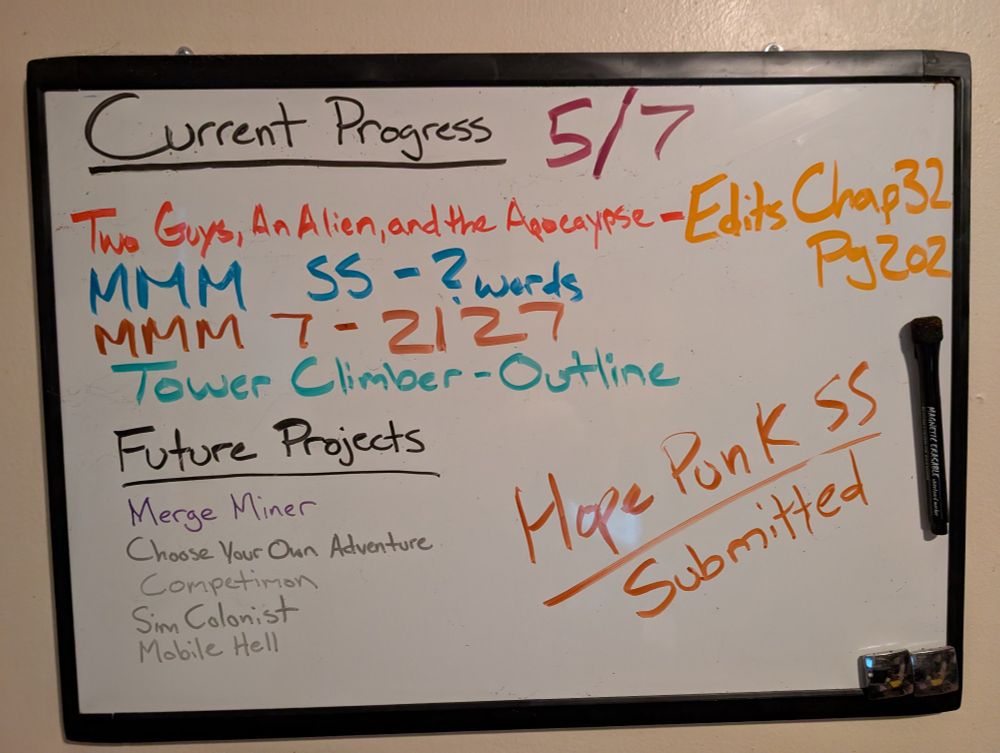 Current Progress 5/7
Two Guys, An Alien, and the Apocaypse - Edits Chap 32
Pg 202
MMM SS - ? words
MMM 7 - 2127
Tower Climber - Outline
Future Projects
Merge Miner
Choose Your Own Adventure
Competimon
Sim Colonist
Mobile Hell
Hope Punk SS
Submitted
MAGNETIC ERASABLE